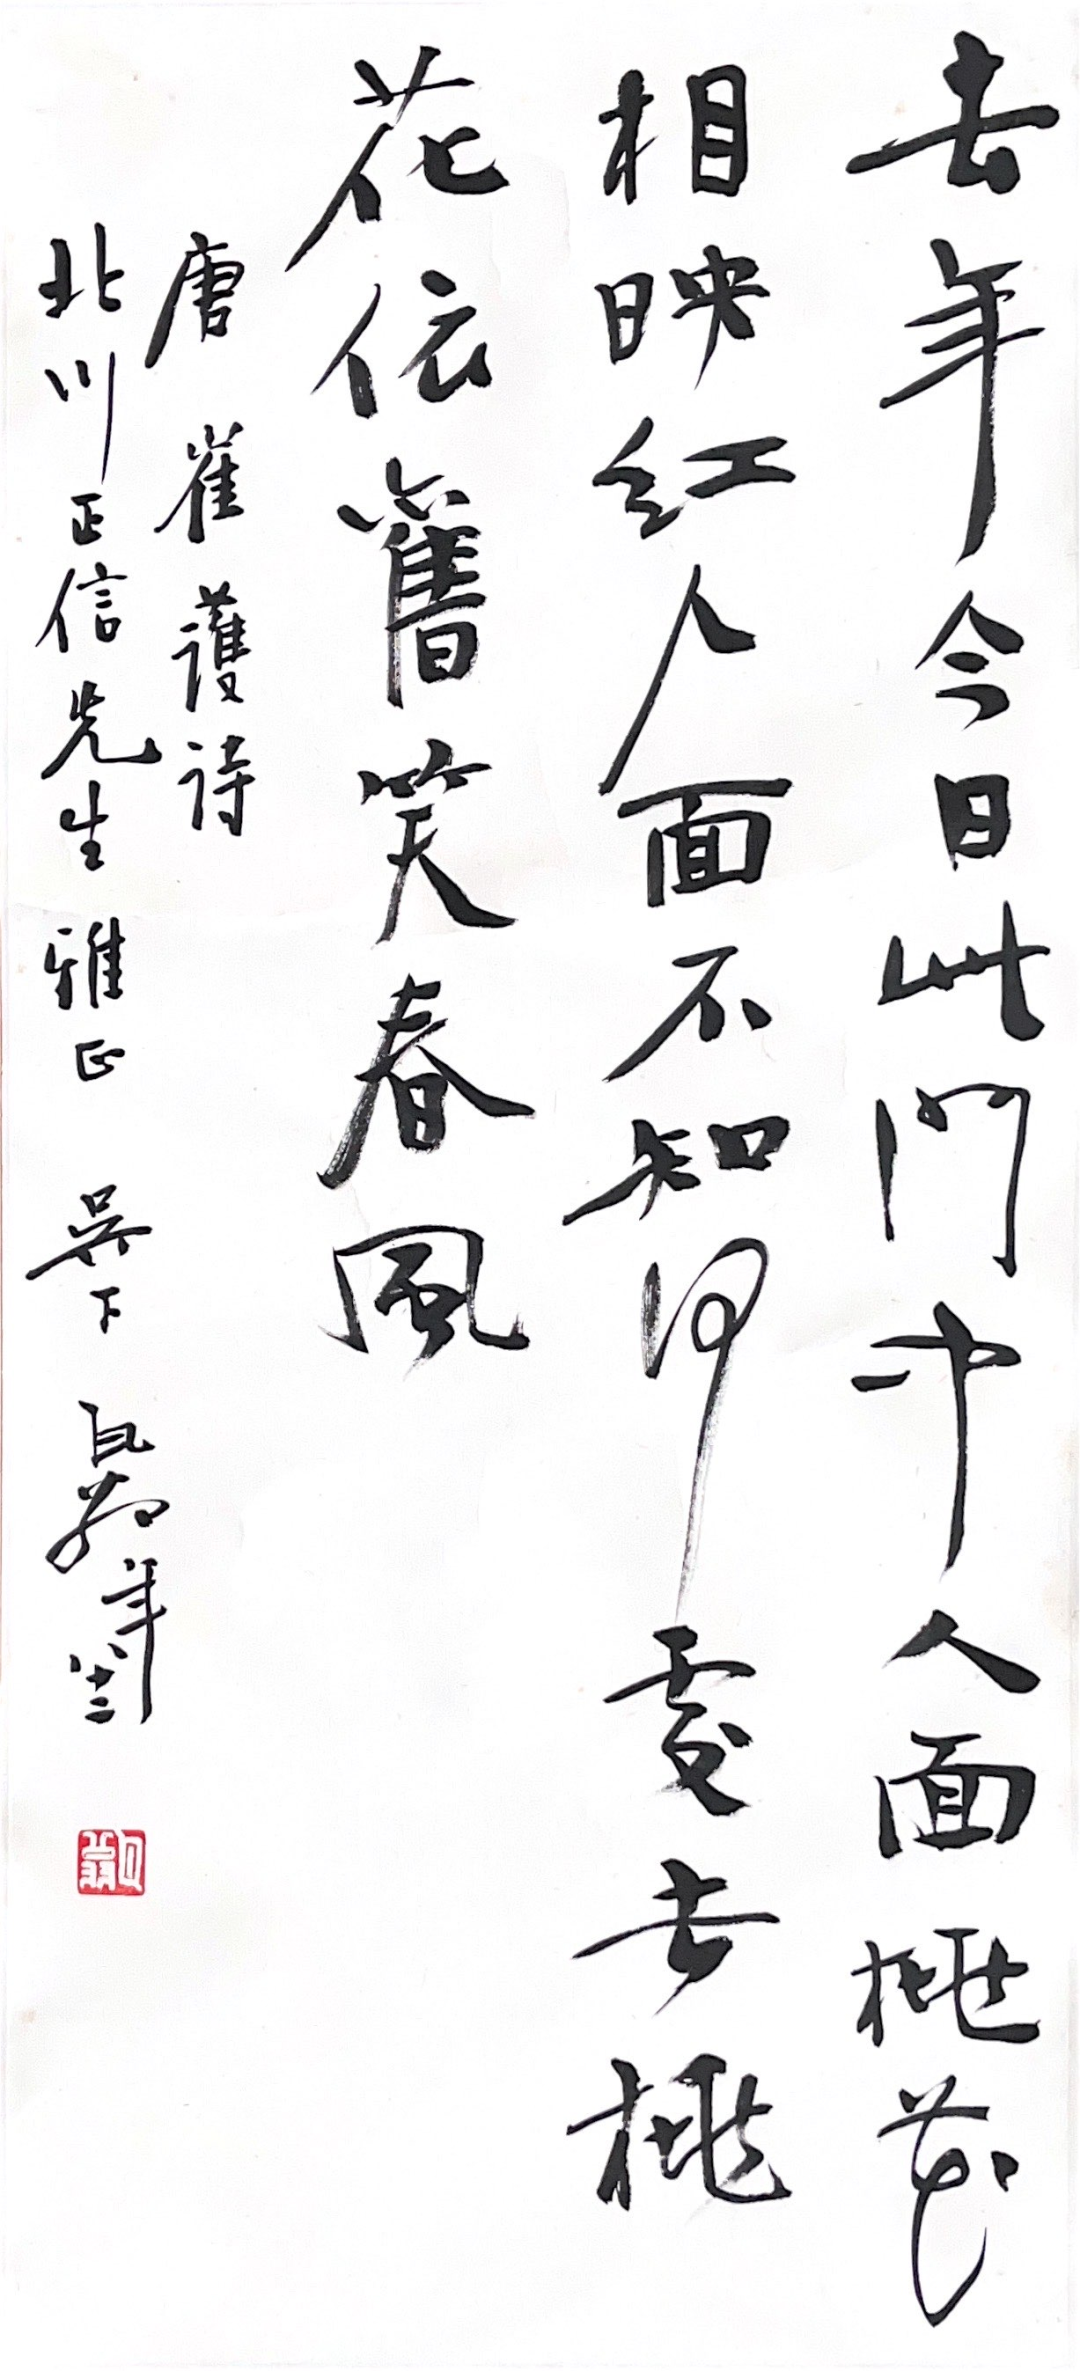 去年今日此門中人面桃花
相映紅人面不知何處去桃
花依舊笑春風
唐崔護詩
北川正信先生雅正 吳下 瓦翁年
瓦翁